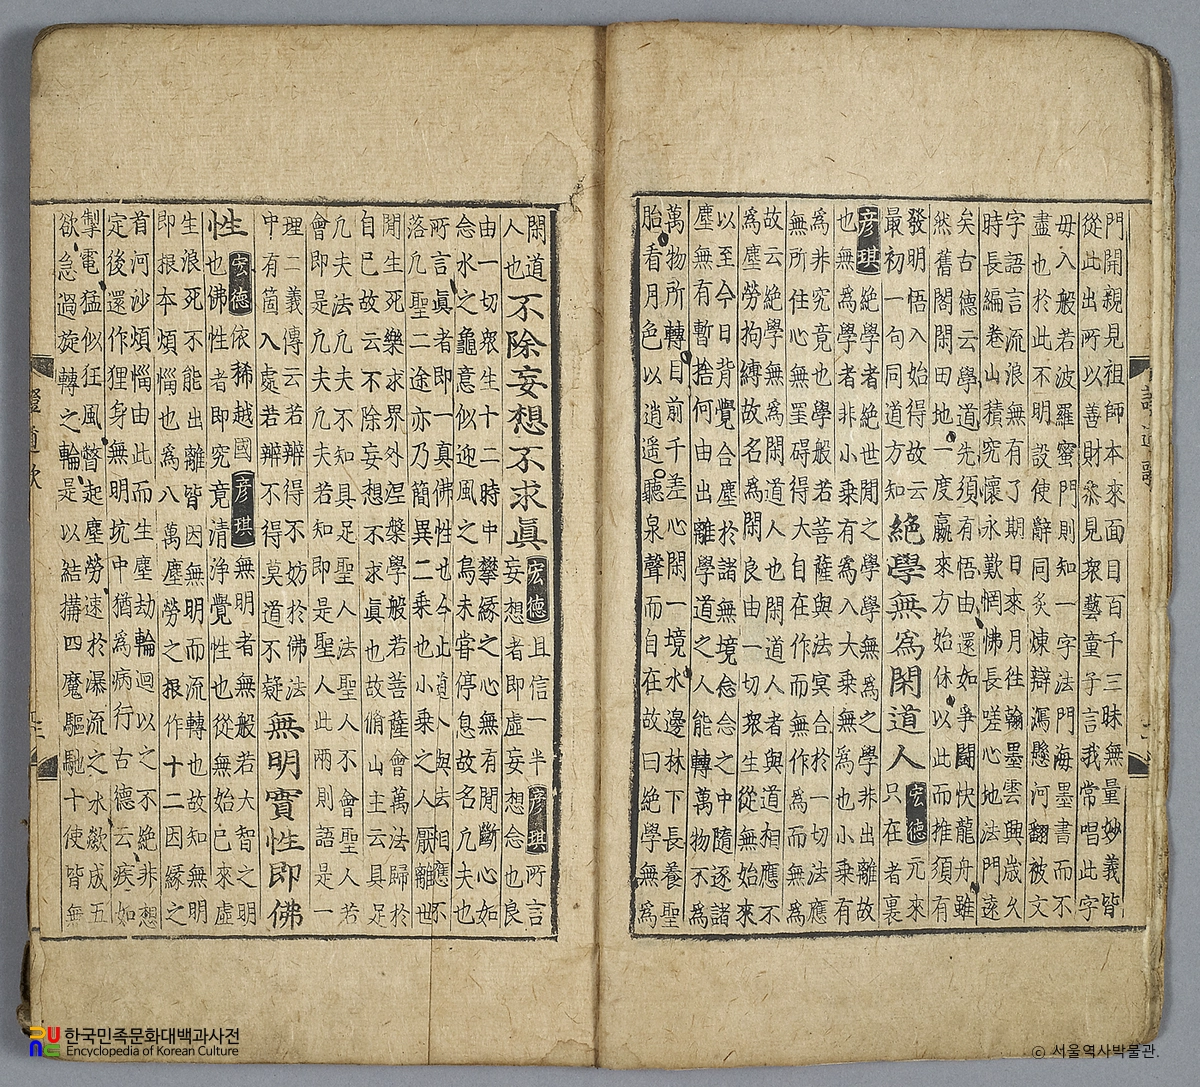 門開親見祖師本來面目百千三昧無量妙義皆
從此出所以善財叅見衆藝童子言我常唱此字
母入般若波羅蜜門則知一字法門海墨書而不
盡也於此不明設使辭同炙煉辯瀉懸河翻被文
字語言流浪無有了期日來月徃翰墨雲興歳久
時長編卷山積究懷永歎惘怫長嗟心地法門遠
矣古德云學道先須有悟由還如爭鬪快龍舟雖
然舊閣閑田地一度贏來方始休以此而推須有
發明悟入始得故云
最初一句同道方知
絶學無爲閑道人
宏德 元來
只在者裏
彦琪 絶學者絶世間之學學無爲之學非出離故
也無爲學者非小乗有爲入大乗無爲也小乗有
爲非究竟也學般若菩薩與法冥合於一切法應
無所住心無罣碍得大自在作而無作爲而無爲
故云絶學無爲閑道人也閑道人者與道相應不
爲塵勞拘縛故名爲閑良由一切衆生從無始來
以至今日背覺合塵於諸無境念念之中隨逐諸
塵無有暫捨何由出離學道之人能轉萬物不爲
萬物所轉目前千差心閑一境水邊林下長養聖
胎看月色以逍遥聽泉聲而自在故曰絶學無爲
閑道
人也
不除妄想不求眞
宏德 且信一半 彦琪 所言
妄想者即虚妄想念也良
由一切衆生十二時中攀縁之心無有閒斷心如
念水之龜意似迎風之鳥未嘗停息故名凢夫也
所言眞者即一眞佛性也今此道人與去相應不
落凢聖二途亦乃簡異二乗也小乗之人厭離世
閒生死樂求界外涅槃學般若菩薩會萬法歸於
自已故云不除妄想不求眞也故脩山主云具足
凢夫法凢夫不知具足聖人法聖人不會聖人若
會即是凢夫凢夫若知即是聖人此兩則語是一
理二義傳云若辨得不妨於佛法
中有箇入處若辨不得莫道不疑
無明實性即佛
性
宏德 依稀越國 彦琪 無明者無般若大智之明
也佛性者即究竟清浄覺性也從無始已來虚
生浪死不能出離皆因無明而流轉也故知無明
即根本煩惱也爲八萬塵勞之根作十二因縁之
首河沙煩惱由此而生塵劫輪迴以之不絶非想
定後還作狸身無明坑中猶爲病行古德云疾如
掣電猛似狂風瞥起塵勞速於瀑流之水歘成五
欲急過旋轉之輪是以結搆四魔驅馳十使皆無
證道歌
한국민족문화대백과사전
Encyclopedia of Korean Culture
ⓒ 서울역사박물관.